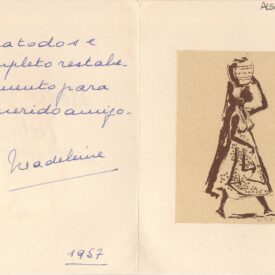 a todos e
mpleto restabe-
mento para
uerido amigo.
Madeleine
1957
ALS